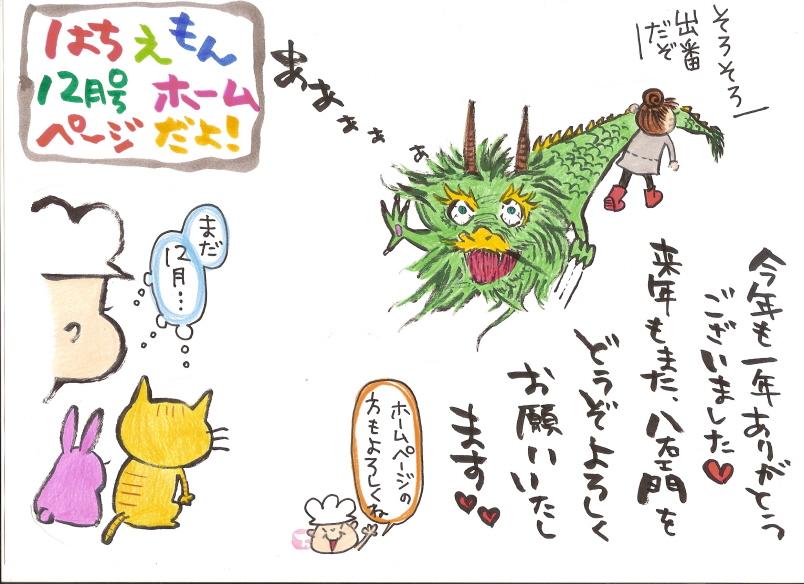 はちえもん
12月号 ホーム
ページだよ!
まぁぁぁぁ
そろそろー
出番
だぞー
まだ
12月…
今年も一年ありがとう
ございました♥
来年もまた、八右エ門を
どうぞよろしく
お願いいたし
ます♥♥
ホームページの
方もよろしくね